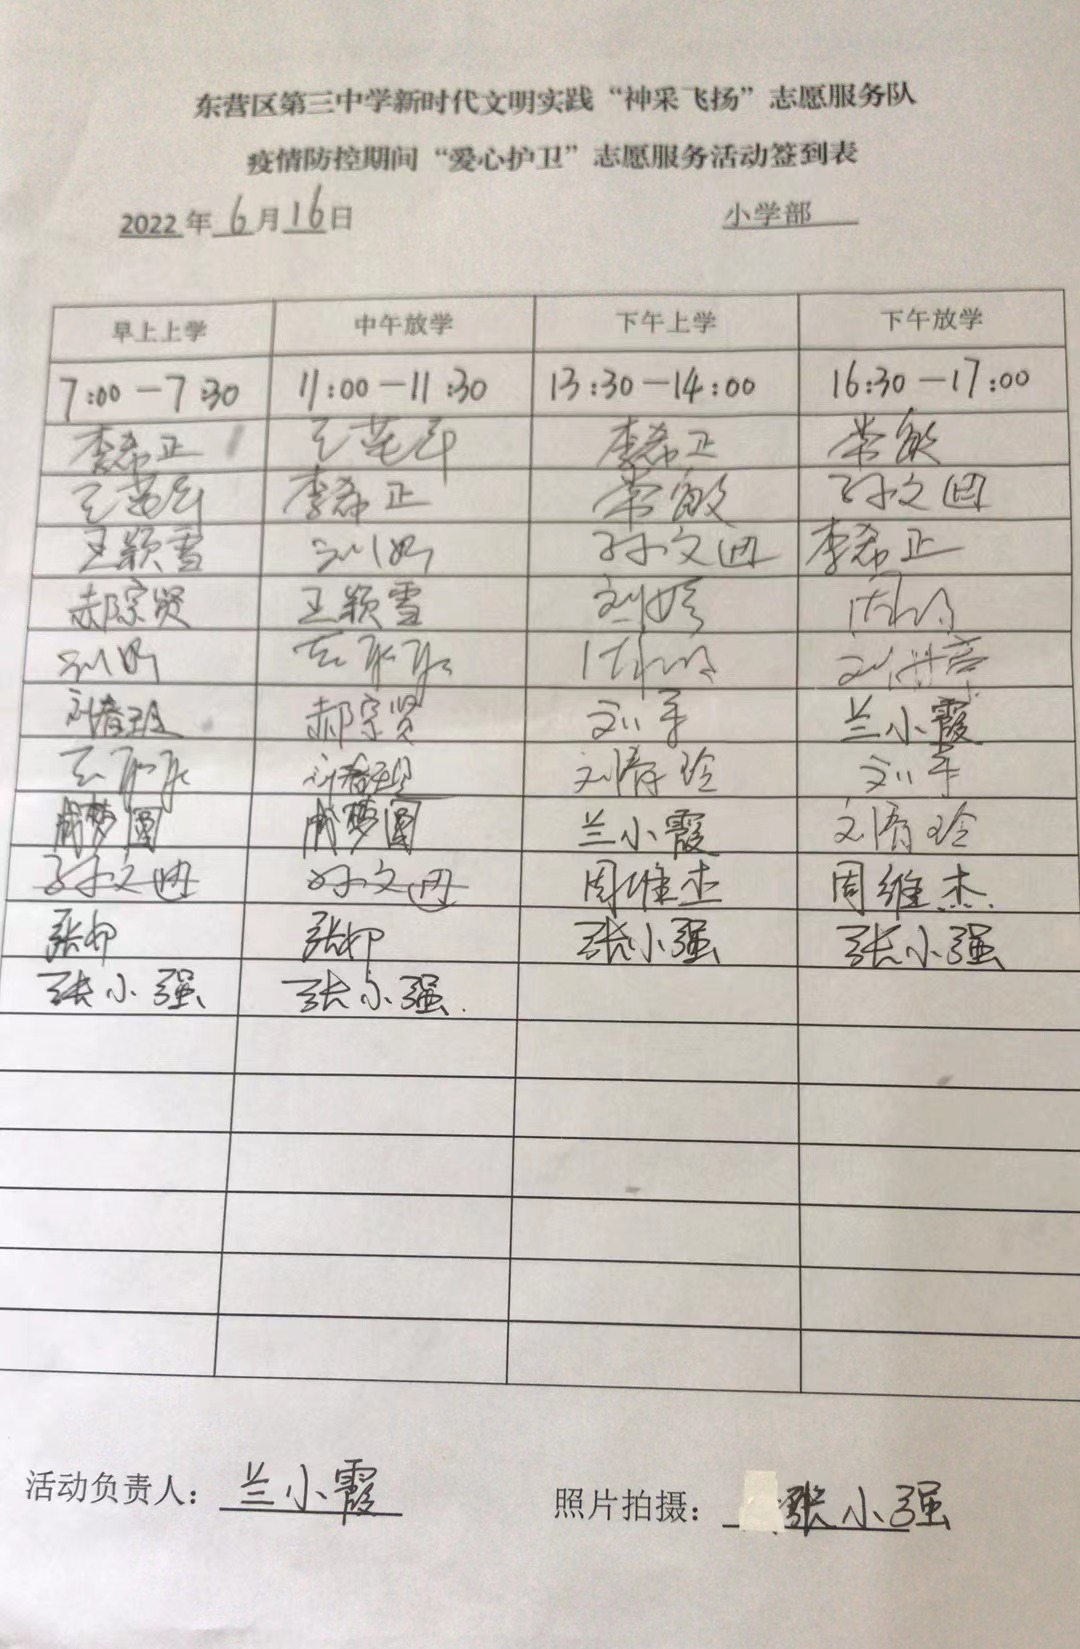 东营区第三中学新时代文明实践“神采飞扬”志愿服务队
疫情防控期间“爱心护卫”志愿服务活动签到表
2022年6月16日 小学部
早上上学 中午放学 下午上学 下午放学
7:00-7:30 11:00-11:30 13:30-14:00 16:30-17:00
李希正 李希正 常敏
李希正 常敏 孙文迪
王颖雪 孙文迪 李希正
郝宗贤 王颖雪 刘婷
郝宗贤 刘军 兰小霞
刘军
成梦圆 成梦圆 兰小霞
孙文迪 孙文迪 周维杰 周维杰
张卯 张卯 张小强 张小强
张小强 张小强
活动负责人：兰小霞 照片拍摄：张小强